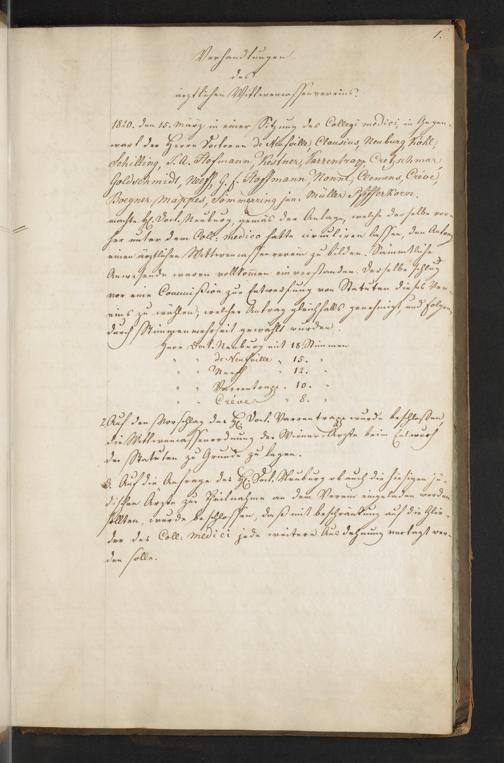 1.
Verhandlungen
des
ärztlichen Wittwencassenvereins.
1820. den 15. März in einer Sitzung des Collegi medici, in Gegen-
wart der Herrn Doctoren de Neufville, Clausius, Neuburg,
Schilling, S. A. Hofmann, Kestner, Varrentrapp, Cretzschmar
Goldschmidt, Neeff, G. F. Hoffmann, Nonne, Clemens, Creve,
Bregner, Mappes, Sömmering jun. Müller, Pfefferkorn.
machte H. Doct. Neuburg, gemäs der Anlage, welche derselbe vor-
her unter dem Coll. medico hatte circuliren lassen, den Antrag
einen ärztlichen Wittwencassenverein zu bilden. Sämmtliche
Anwesende waren vollkomen einverstanden. Derselbe schlug
vor eine Commißion zur Entwerfung von Statuten dieses Ver-
eins zu wählen, welcher Antrag gleichfalls genehmigt, und folgende
durch Stimmenmehrheit gewählt wurden.
Herr Doct. Neuburg mit 18. Stimmen
" " de Neufville " 15. "
" " Neeff " 12. "
" " Varrentrapp " 10. "
" " Creve " 8. "
2. Auf den Vorschlag des H. Doct. Varrentrapp wurde beschlossen,
die Wittwencassenordnung der Wiener Ärzte beim Entwurf
der Statuten zu Grunde zu legen.
3. Auf die Anfrage des H. Doct. Neuburg ob auch die hiesigen jü-
dischen Ärzte zur Theilnahme an dem Verein eingeladen werden
sollten, wurde beschlossen, daß mit Beschränkung auf die Glie-
der des Coll. medici jede weitere Ausdehnung vertagt wer-
den solle.